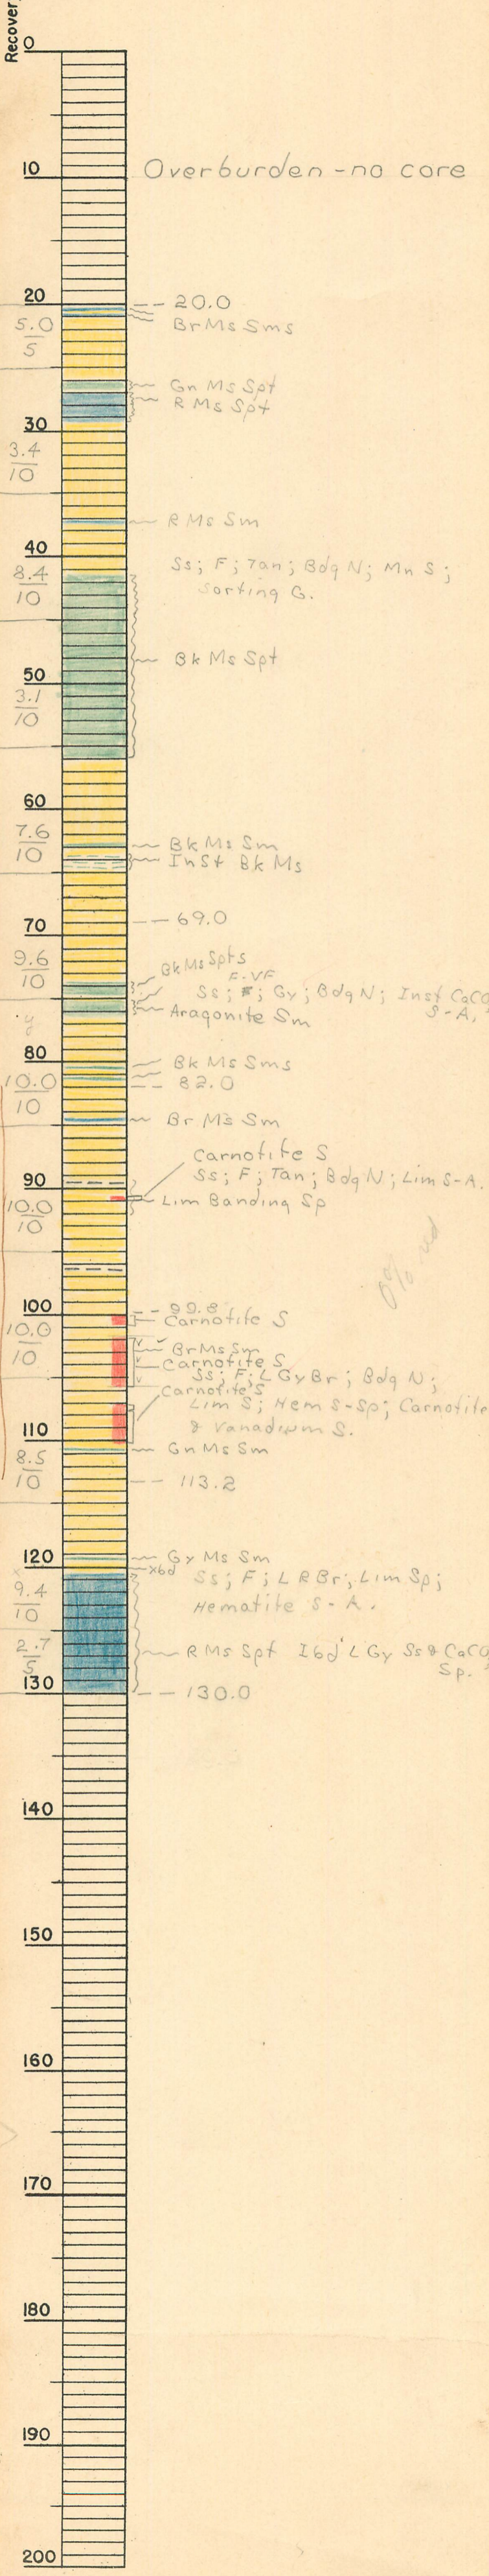 Recover
0
10
Overburden - no core
20
-- 20.0
5.0
5
Br Ms Sms
Gn Ms Spt
R Ms Spt
30
3.4
10
R Ms Sm
40
8.4
10
Ss; F; Tan; Bdg N; Mn S;
Sorting G.
50
Bk Ms Spt
3.1
10
60
7.6
10
Bk Ms Sm
InSt Bk Ms
70
-- 69.0
9.6
10
Bk Ms Spts
F-VF
Ss; F; Gy; Bdg N; Inst CaCO
S-A,
Aragonite Sm
80
Bk Ms Sms
10.0
10
-- 82.0
Br Ms Sm
Carnotite S
90
Ss; F; Tan; Bdg N; Lim S-A.
10.0
10
Lim Banding Sp
100
-- 99.8
Carnotite S
10.0
10
Br Ms Sm
Carnotite S
Ss; F; L Gy Br; Bdg N;
Carnotite S
Lim S; Hem S-Sp; Carnotite
& Vanadium S.
110
Gn Ms Sm
8.5
10
-- 113.2
120
Gy Ms Sm
xbd
Ss; F; L R Br; Lim Sp;
9.4
10
Hematite S-A.
2.7
5
R Ms Spt Ibd L Gy Ss & CaCO
Sp.
130
-- 130.0
140
150
160
170
180
190
200